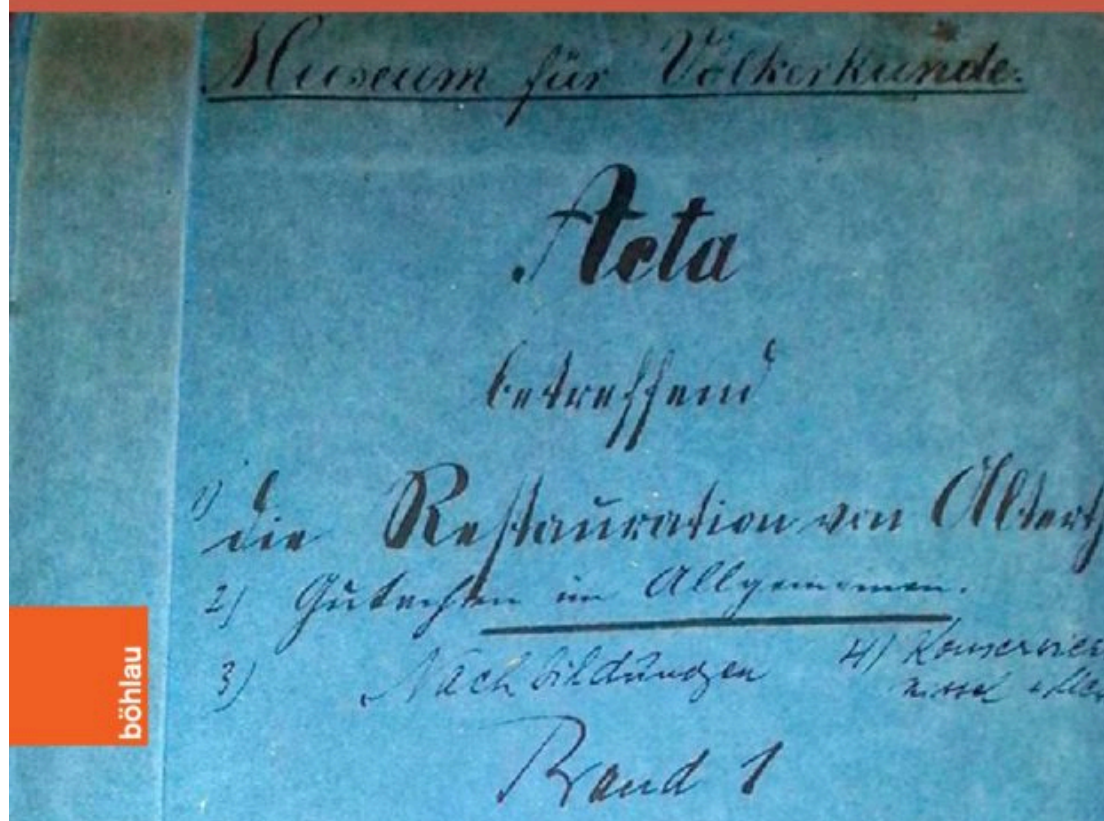 Museum für Völkerkunde.
Acta
betreffend
1) die Restauration von Alterth
2) Gutachten im Allgemeinen.
3) Nachbildungen
4) Konservier
mittel
Band 1
böhlau